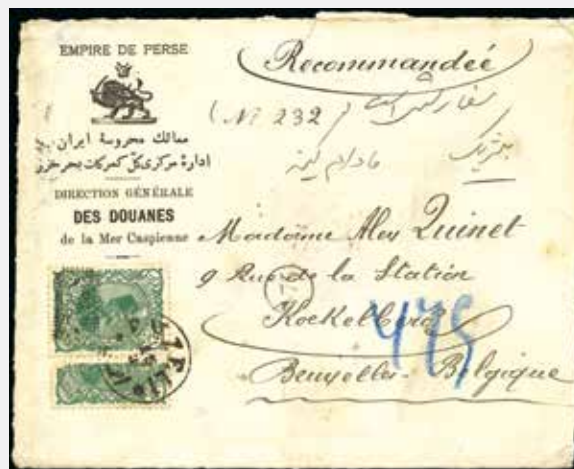 EMPIRE DE PERSE
ممالك محروسة ايران
ادارة مركزى كل كمركات بحر خزر
DIRECTION GÉNÉRALE
DES DOUANES
de la Mer Caspienne
Recommandée
(Nº 232)
سفارشى است
بلژيك
مادام كينه
Madame Alex Quinet
9 Rue de la Station
Koekelberg
Bruxelles - Belgique
475